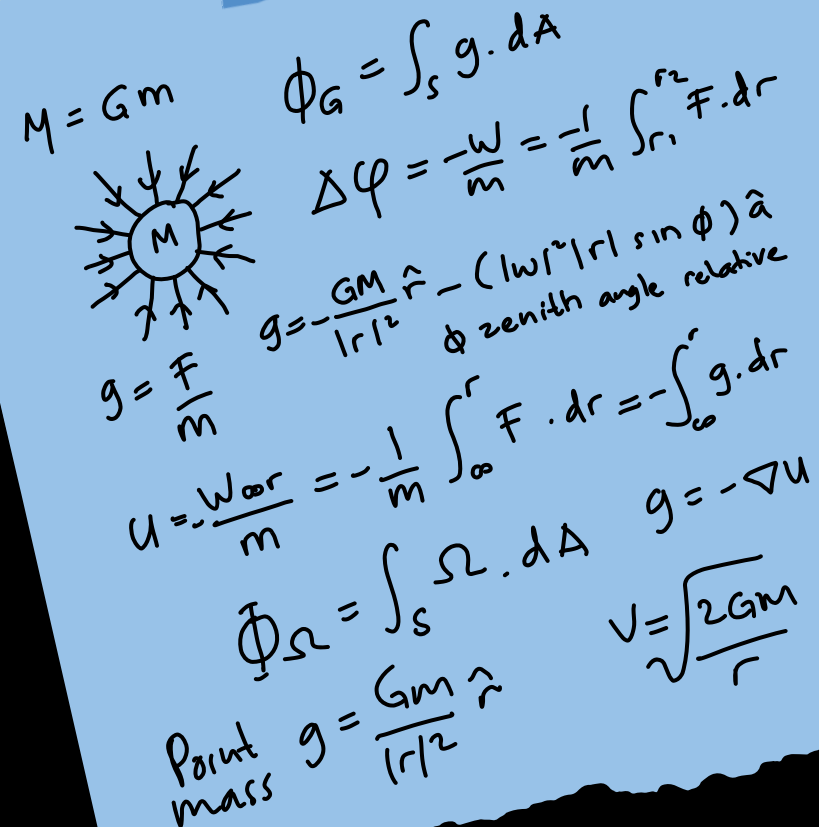 M = Gm
ϕ_G = ∫_S g . dA
Δφ = -W/m = -1/m ∫_{r₁}^{r₂} F . dr
M
g = - GM/|r|² r̂ - (|w|² |r| sin ϕ) â
ϕ zenith angle relative
g = F/m
U = - W∞r/m = - 1/m ∫_∞^r F . dr = - ∫_∞^r g . dr
g = - ∇U
Φ_Ω = ∫_S Ω . dA
V = √(2Gm/r)
Point mass g = Gm/|r|² r̂